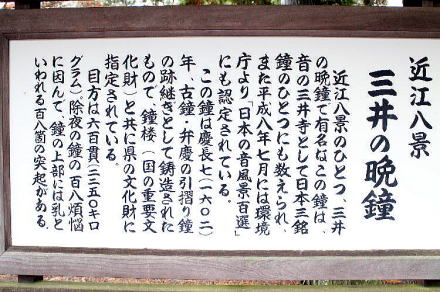 近江八景
三井の晩鐘
近江八景のひとつ、三井
の晩鐘で有名なこの鐘は、
音の三井寺として日本三銘
鐘のひとつにも数えられ、
また平成八年七月には環境
庁より「日本の音風景百選」
にも認定されている。
この鐘は慶長七(一六〇二)
年、古鐘・弁慶の引摺り鐘
の跡継ぎとして鋳造された
もので、鐘楼(国の重要文
化財)と共に県の文化財に
指定されている。
目方は六百貫(二二五〇キロ
グラム)除夜の鐘の百八煩悩
に因んで、鐘の上部には乳と
いわれる百八箇の突起がある。